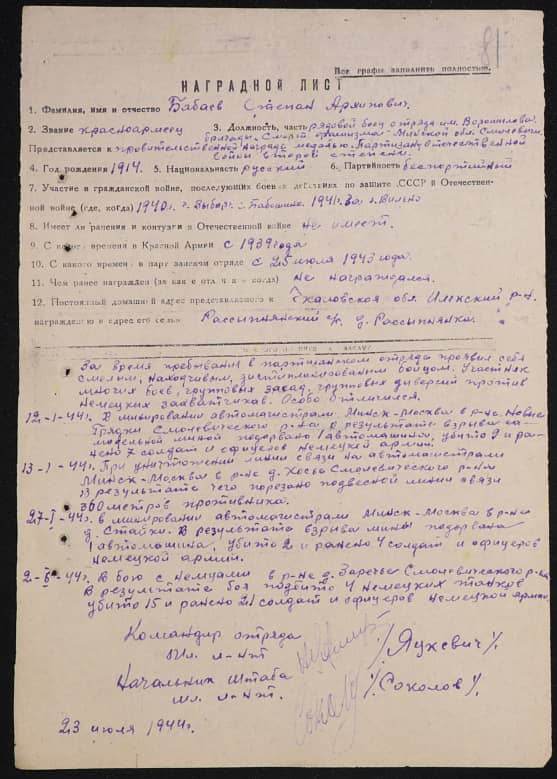 81
Все графы заполнить полностью.
НАГРАДНОЙ ЛИСТ
1. Фамилия, имя и отчество Бабаев Степан Архипович.
2. Звание красноармеец 3. Должность, часть рядовой боец отряда им. Ворошилова
бригады "Смерть фашизма" Минской обл. Смолевичи.
Представляется к правительственной награде медалью "Партизану отечественной
войны" второй степени.
4. Год рождения 1914. 5. Национальность русский 6. Партийность беспартийный
7. Участие в гражданской войне, последующих боевых действиях по защите СССР и Отечествен-
ной войне (где, когда) 1940г. г. Выборг 1941г. За г. Вильно
8. Имеет ли ранения и контузии в Отечественной войне не имеет.
9. С какого времени в Красной Армии с 1939 года
10. С какого времени в партизанском отряде с 25 июля 1943 года.
11. Чем ранее награжден (за какие отличия и когда) Не награждался.
12. Постоянный домашний адрес представляемого к Чкаловская обл. Илекский р-н.
награждению и адрес его семьи Рассыпнянский с/с. д. Рассыпнянка.
За время пребывания в партизанском отряде проявил себя
смелым, находчивым, дисциплинированным бойцом. Участник
многих боев, групповых засад, групповых диверсий против
немецких захватчиков. Особо отличился.
12-I-44г. В минировании автомагистрали Минск-Москва в р-не. Новые
Грядки Смолевичского р-на в результате взрыва са-
модельной миной подорвано 1 автомашина, убито 9 и ра-
нено 7 солдат и офицеров немецкой армии.
13-I-44г. При уничтожении линии связи на автомагистрали
Минск-Москва в р-не д. Смолевичского р-на
в результате чего порезано подвесной линии связи
300 метров противника.
27-I-44г. в минировании автомагистрали Минск-Москва в р-не
д. Стайки. В результате взрыва мины подорвана
1 автомашина, убито 2 и ранено 4 солдат и офицеров
немецкой армии.
2-44г. В бою с немцами в р-не д. Заречье Смолевичского р-на
В результате боя подбито 4 немецких танков
убито 15 и ранено 21 солдат и офицеров немецкой армии.
Командир отряда
мл. л-нт /Яцкевич/.
Начальник штаба
мл. л-нт. /Соколов/.
23 июля 1944г.